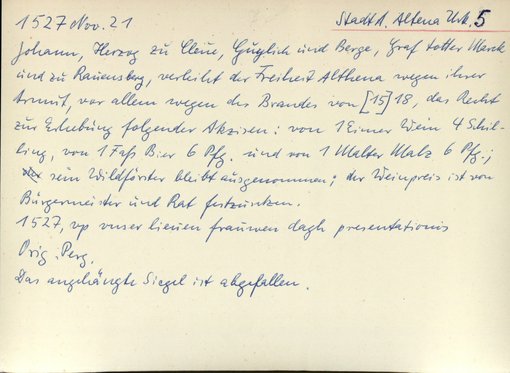 1527 Nov. 21
Stadt A. Altena Urk. 5
Johann, Herzog zu Cleve, Guylich und Berge, Graf to der Marck
und zu Ravensberg, verleiht der Freiheit Althena wegen ihrer
Armut, vor allem wegen des Brandes von [15]18, das Recht
zur Erhebung folgender Akzisen: von 1 Eimer Wein 4 Schil-
ling, von 1 Faß Bier 6 Pfg. und von 1 Malter Malz 6 Pfg.;
sein Wildförster bleibt ausgenommen; der Weinpreis ist von
Bürgermeister und Rat festzusetzen.
1527, up unser lieuen frauwen dagh presentationis
Orig. Perg.
Das angehängte Siegel ist abgefallen.